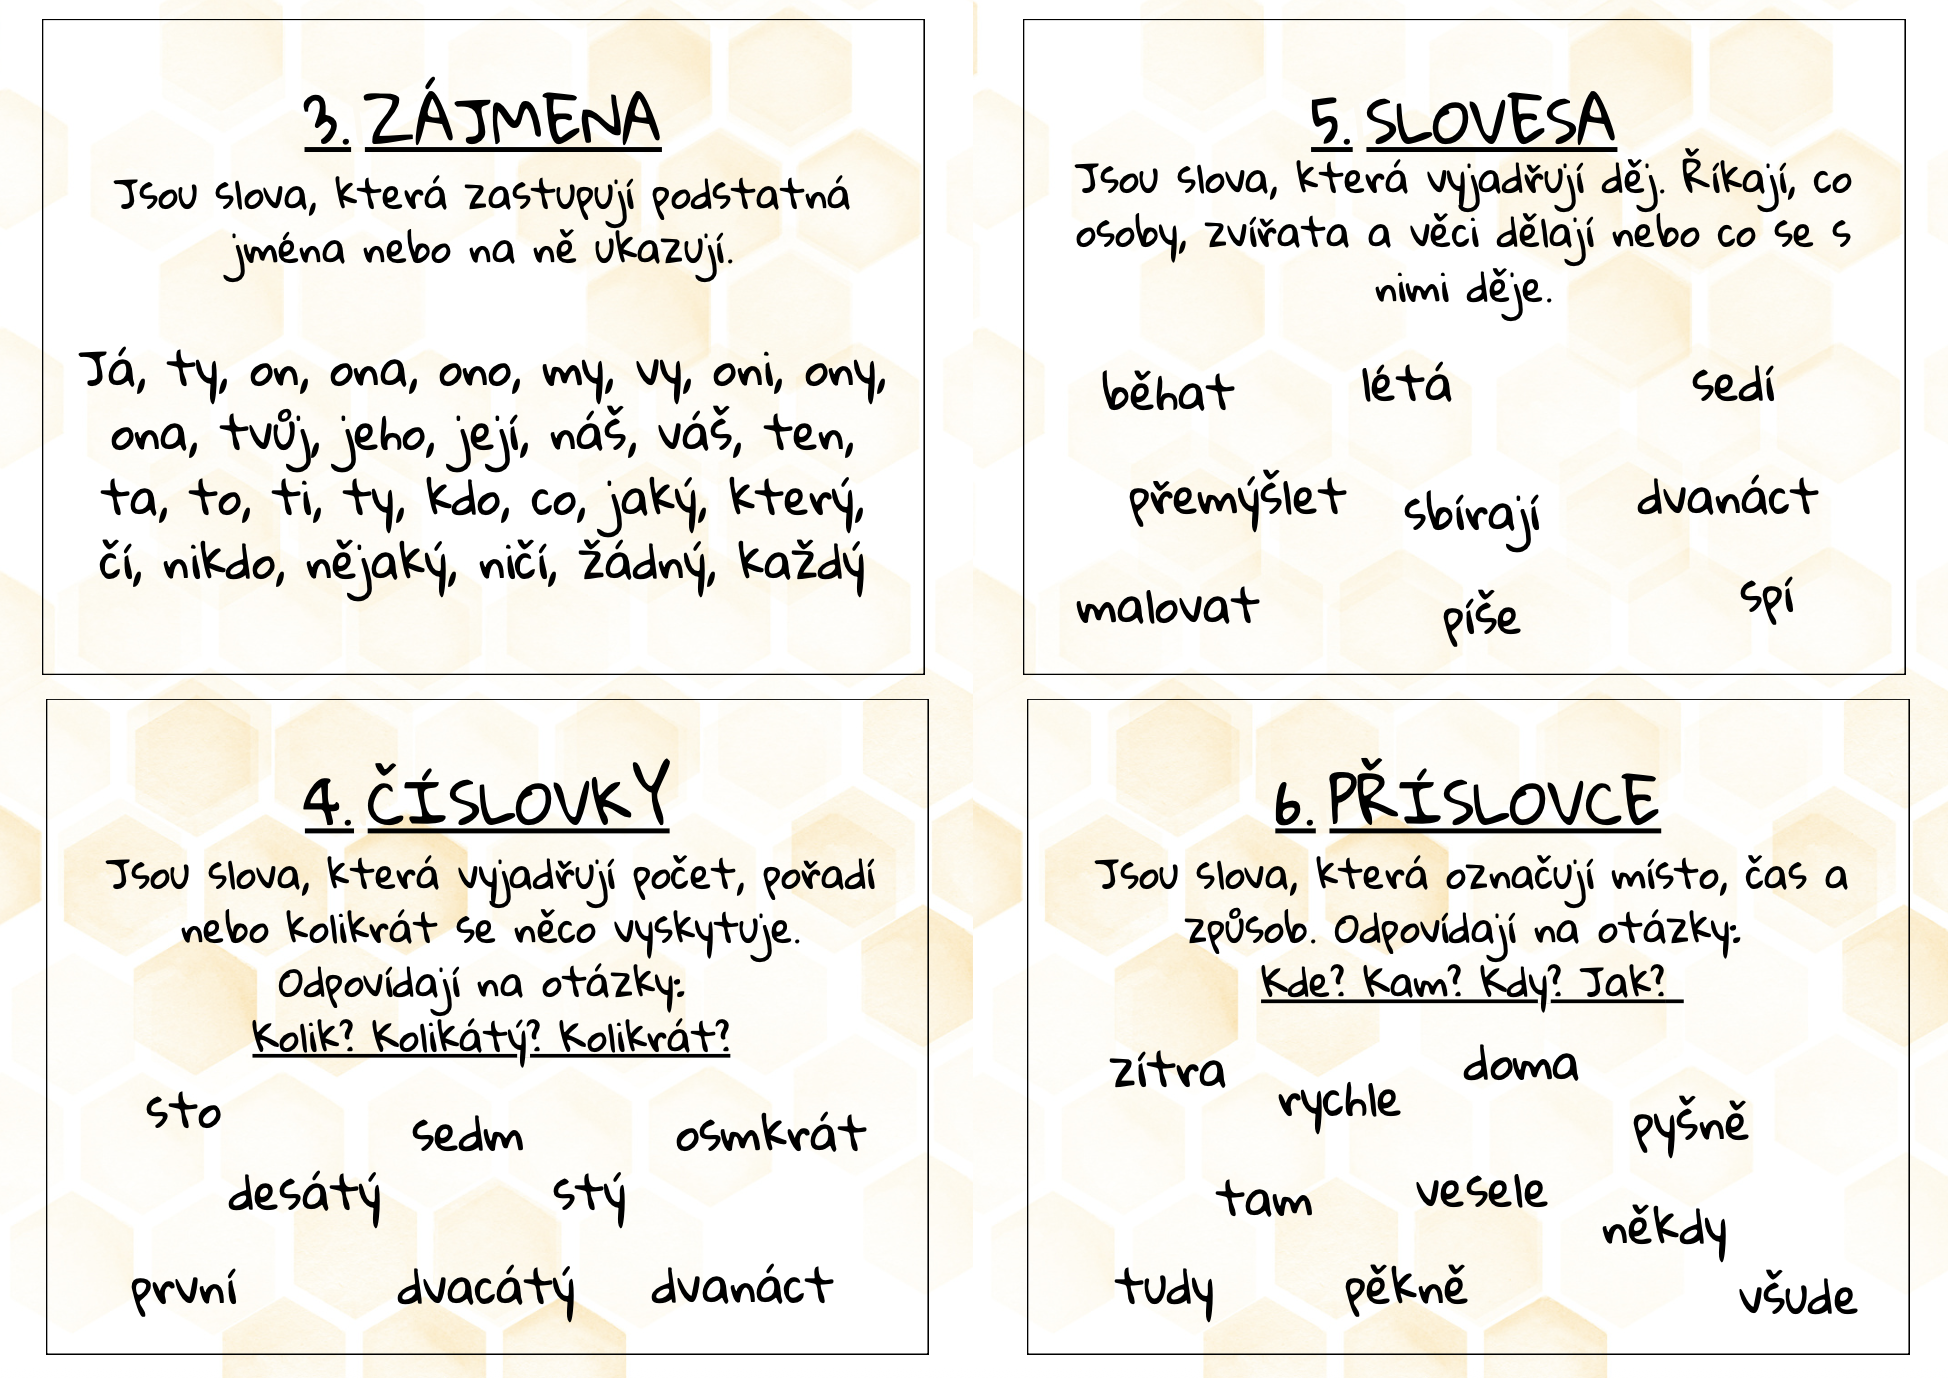 3. ZÁJMENA
Jsou slova, která zastupují podstatná
jména nebo na ně ukazují.
Já, ty, on, ona, ono, my, vy, oni, ony,
ona, tvůj, jeho, její, náš, váš, ten,
ta, to, ti, ty, kdo, co, jaký, který,
čí, nikdo, nějaký, ničí, žádný, každý
5. SLOVESA
Jsou slova, která vyjadřují děj. Říkají, co
osoby, zvířata a věci dělají nebo co se s
nimi děje.
běhat létá sedí
přemýšlet sbírají dvanáct
malovat píše spí
4. ČÍSLOVKY
Jsou slova, která vyjadřují počet, pořadí
nebo kolikrát se něco vyskytuje.
Odpovídají na otázky:
Kolik? Kolikátý? Kolikrát?
sto sedm osmkrát
desátý stý
první dvacátý dvanáct
6. PŘÍSLOVCE
Jsou slova, která označují místo, čas a
způsob. Odpovídají na otázky:
Kde? Kam? Kdy? Jak?
zítra rychle doma pyšně
tam vesele někdy
tudy pěkně všude